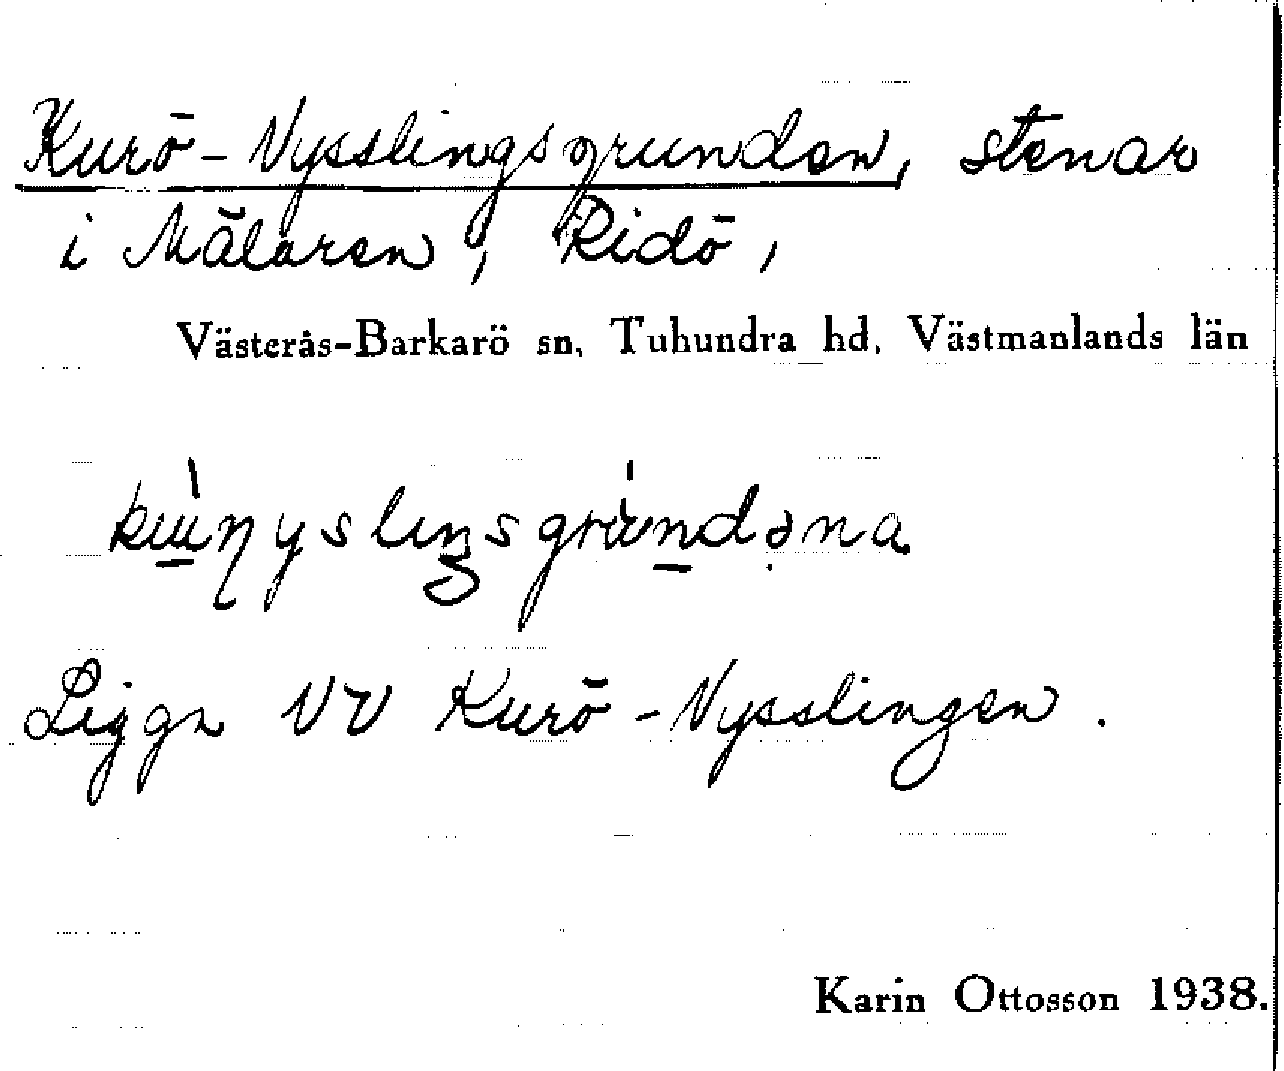 Kurö-Nysslingsgrunden, stenar
i Mälaren, Ridö,
Västerås-Barkarö sn, Tuhundra hd, Västmanlands län
Ligger NV Kurö-Nysslingen.
Karin Ottosson 1938.